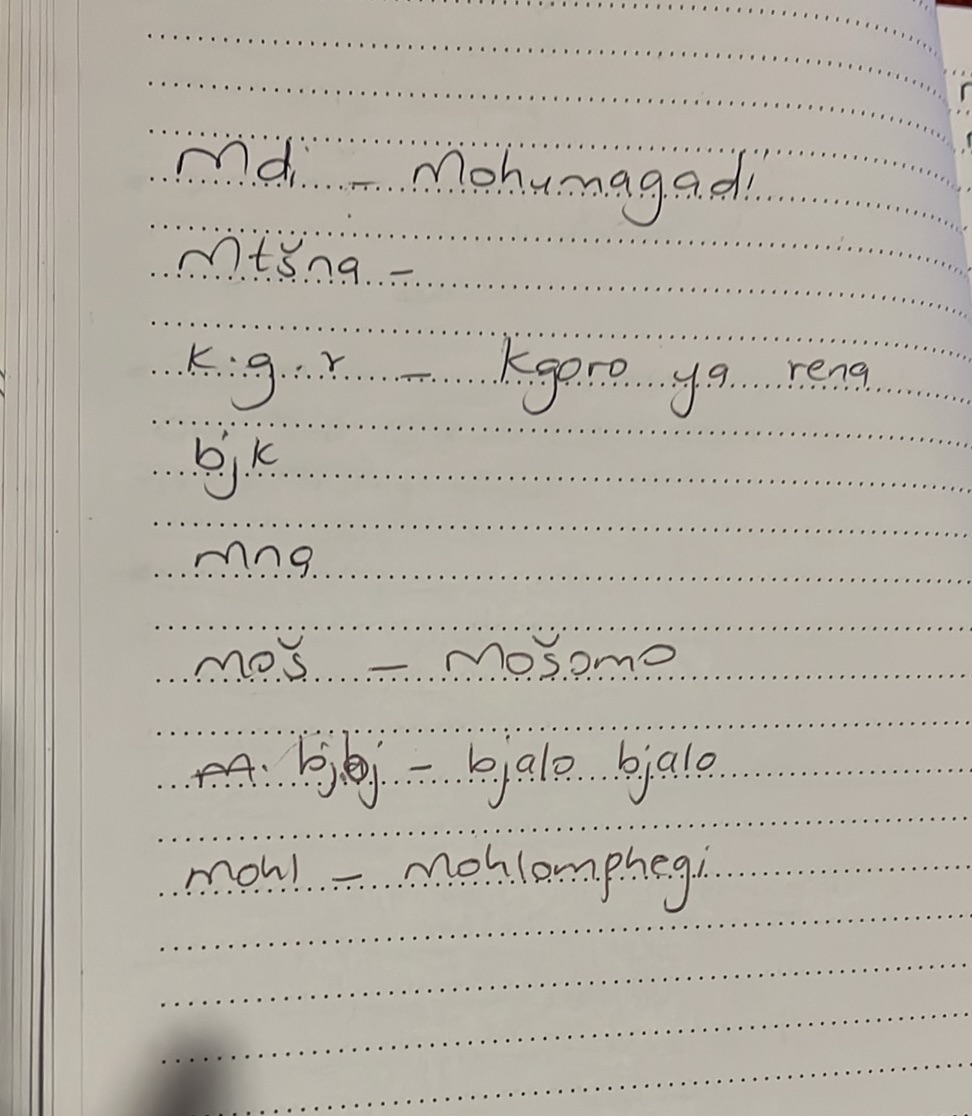 Mdi - Mohumagadi
Mtšna -
k.g.r - Kgoro ya rena
bjk
mna
moš - Mošomo
bjbj - bjalo bjalo
mohl - Mohlomphegi